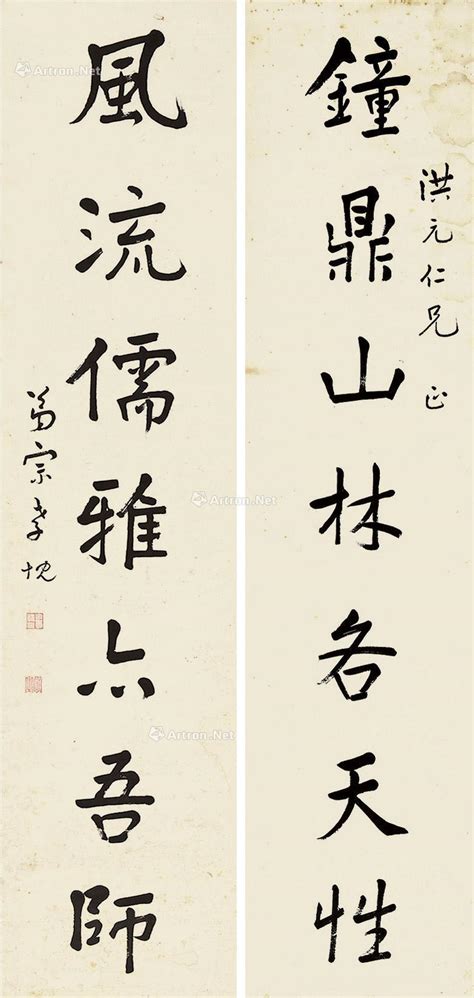 洪元仁兄 正
鐘鼎山林各天性
風流儒雅亦吾師
宗孝忱
Artron.Net
Artron.Net
Artron.Net
Artron.Net